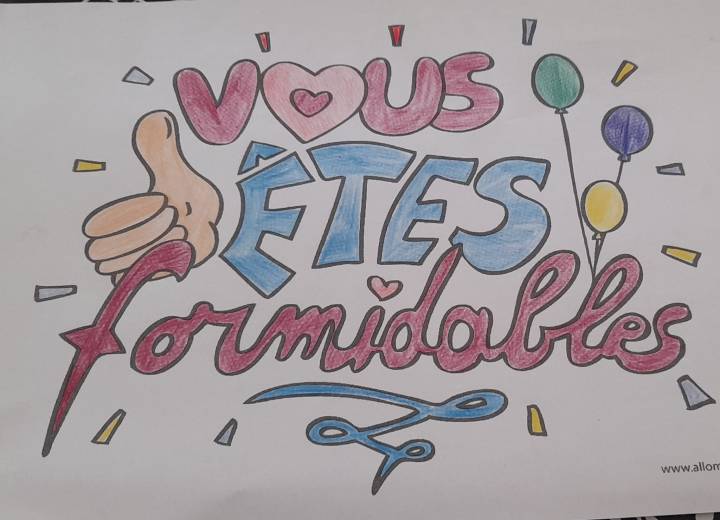 VOUS
ÊTES
formidables
www.allom